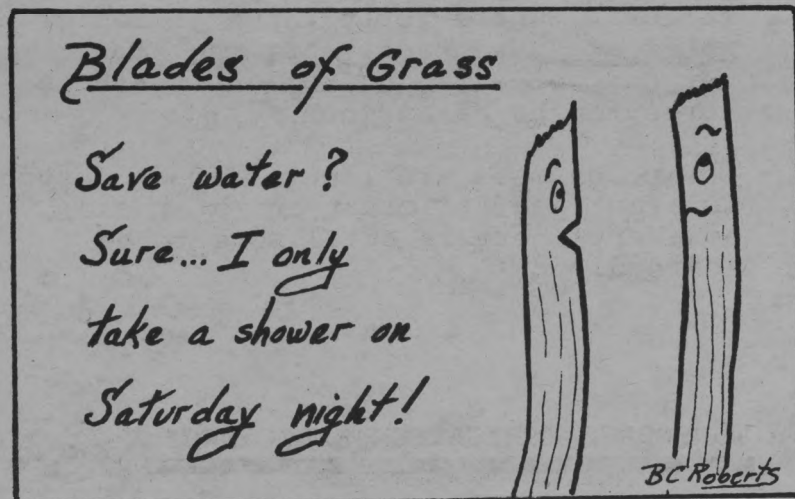 Blades of Grass
Save water?
Sure... I only
take a shower on
Saturday night!
BC Roberts